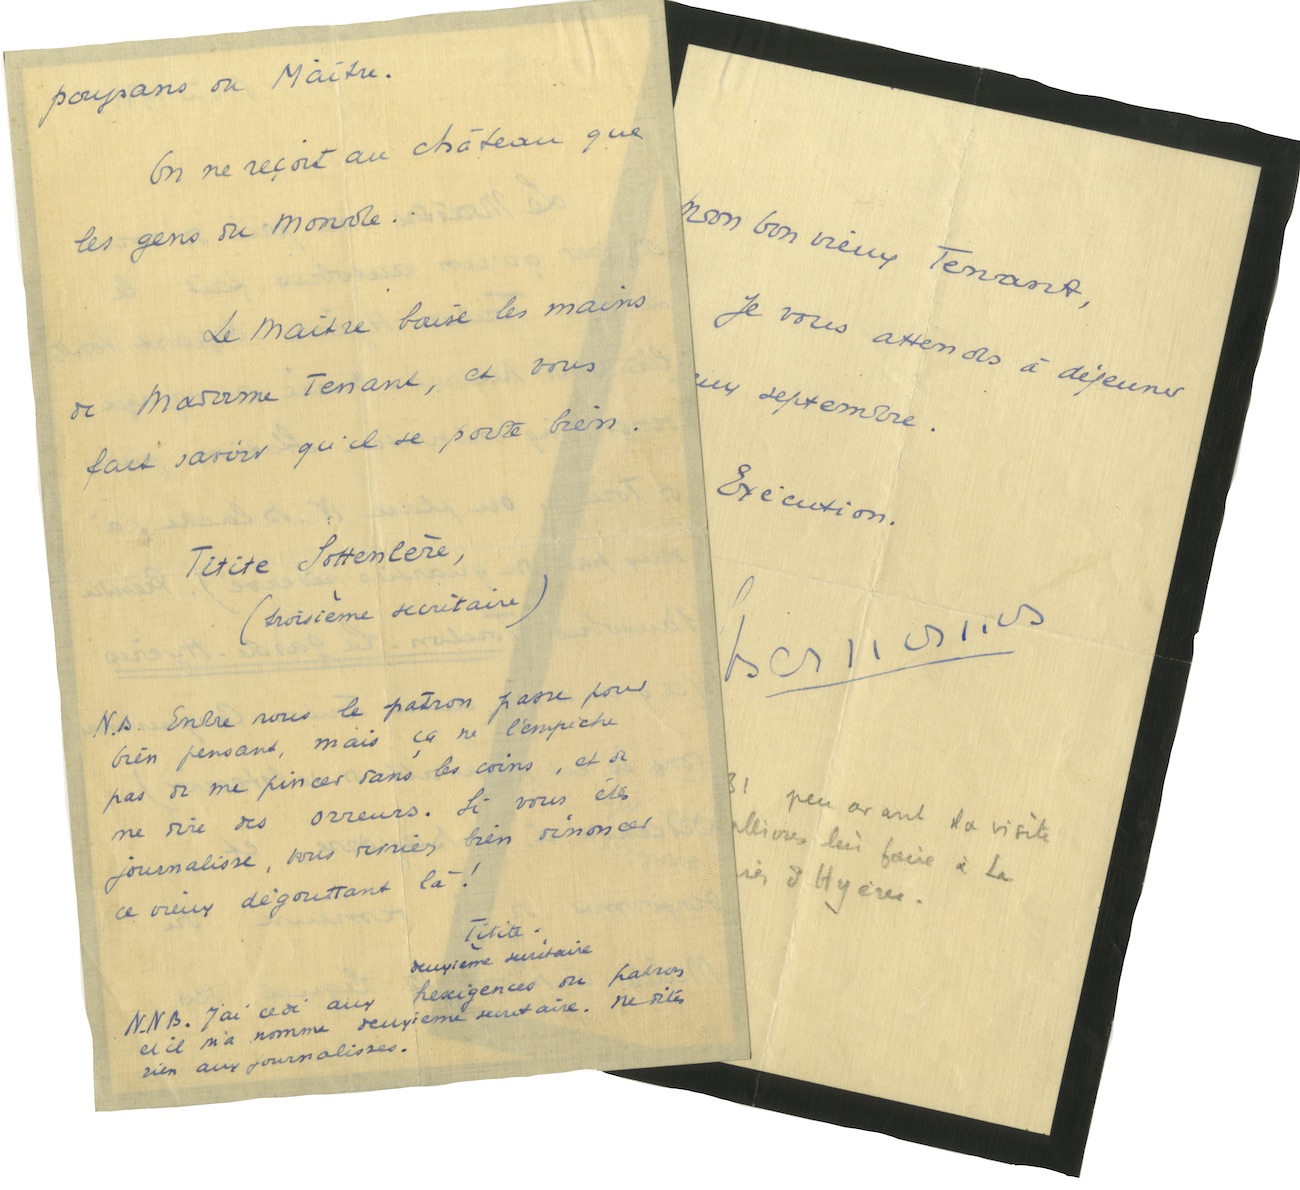 poupans du Maître.
On ne reçoit au château que
les gens du Monde.
Le Maître baise les mains
de Madame Tenant, et vous
fait savoir qu'il se porte bien.
Titite Sottenlère,
(troisième secrétaire)
N.B. Entre nous le patron passe pour
bien pensant, mais ça ne l'empêche
pas de me pincer dans les coins, et de
me dire des orreurs. Si vous étes
journalisse, vous devriez bien dénoncer
ce vieux dégouttant là !
Titite.
deuxième secrétaire
N.NB. J'ai cédé aux hexigences du patron
et il m'a nomme deuxième secretaire. Ne dites
rien aux journalisses.
Mon bon vieux Tenant,
Je vous attends à déjeuner
septembre.
Exécution.
Bernanos
31 peu avant la visite
lui faire à La
d'Hyères.